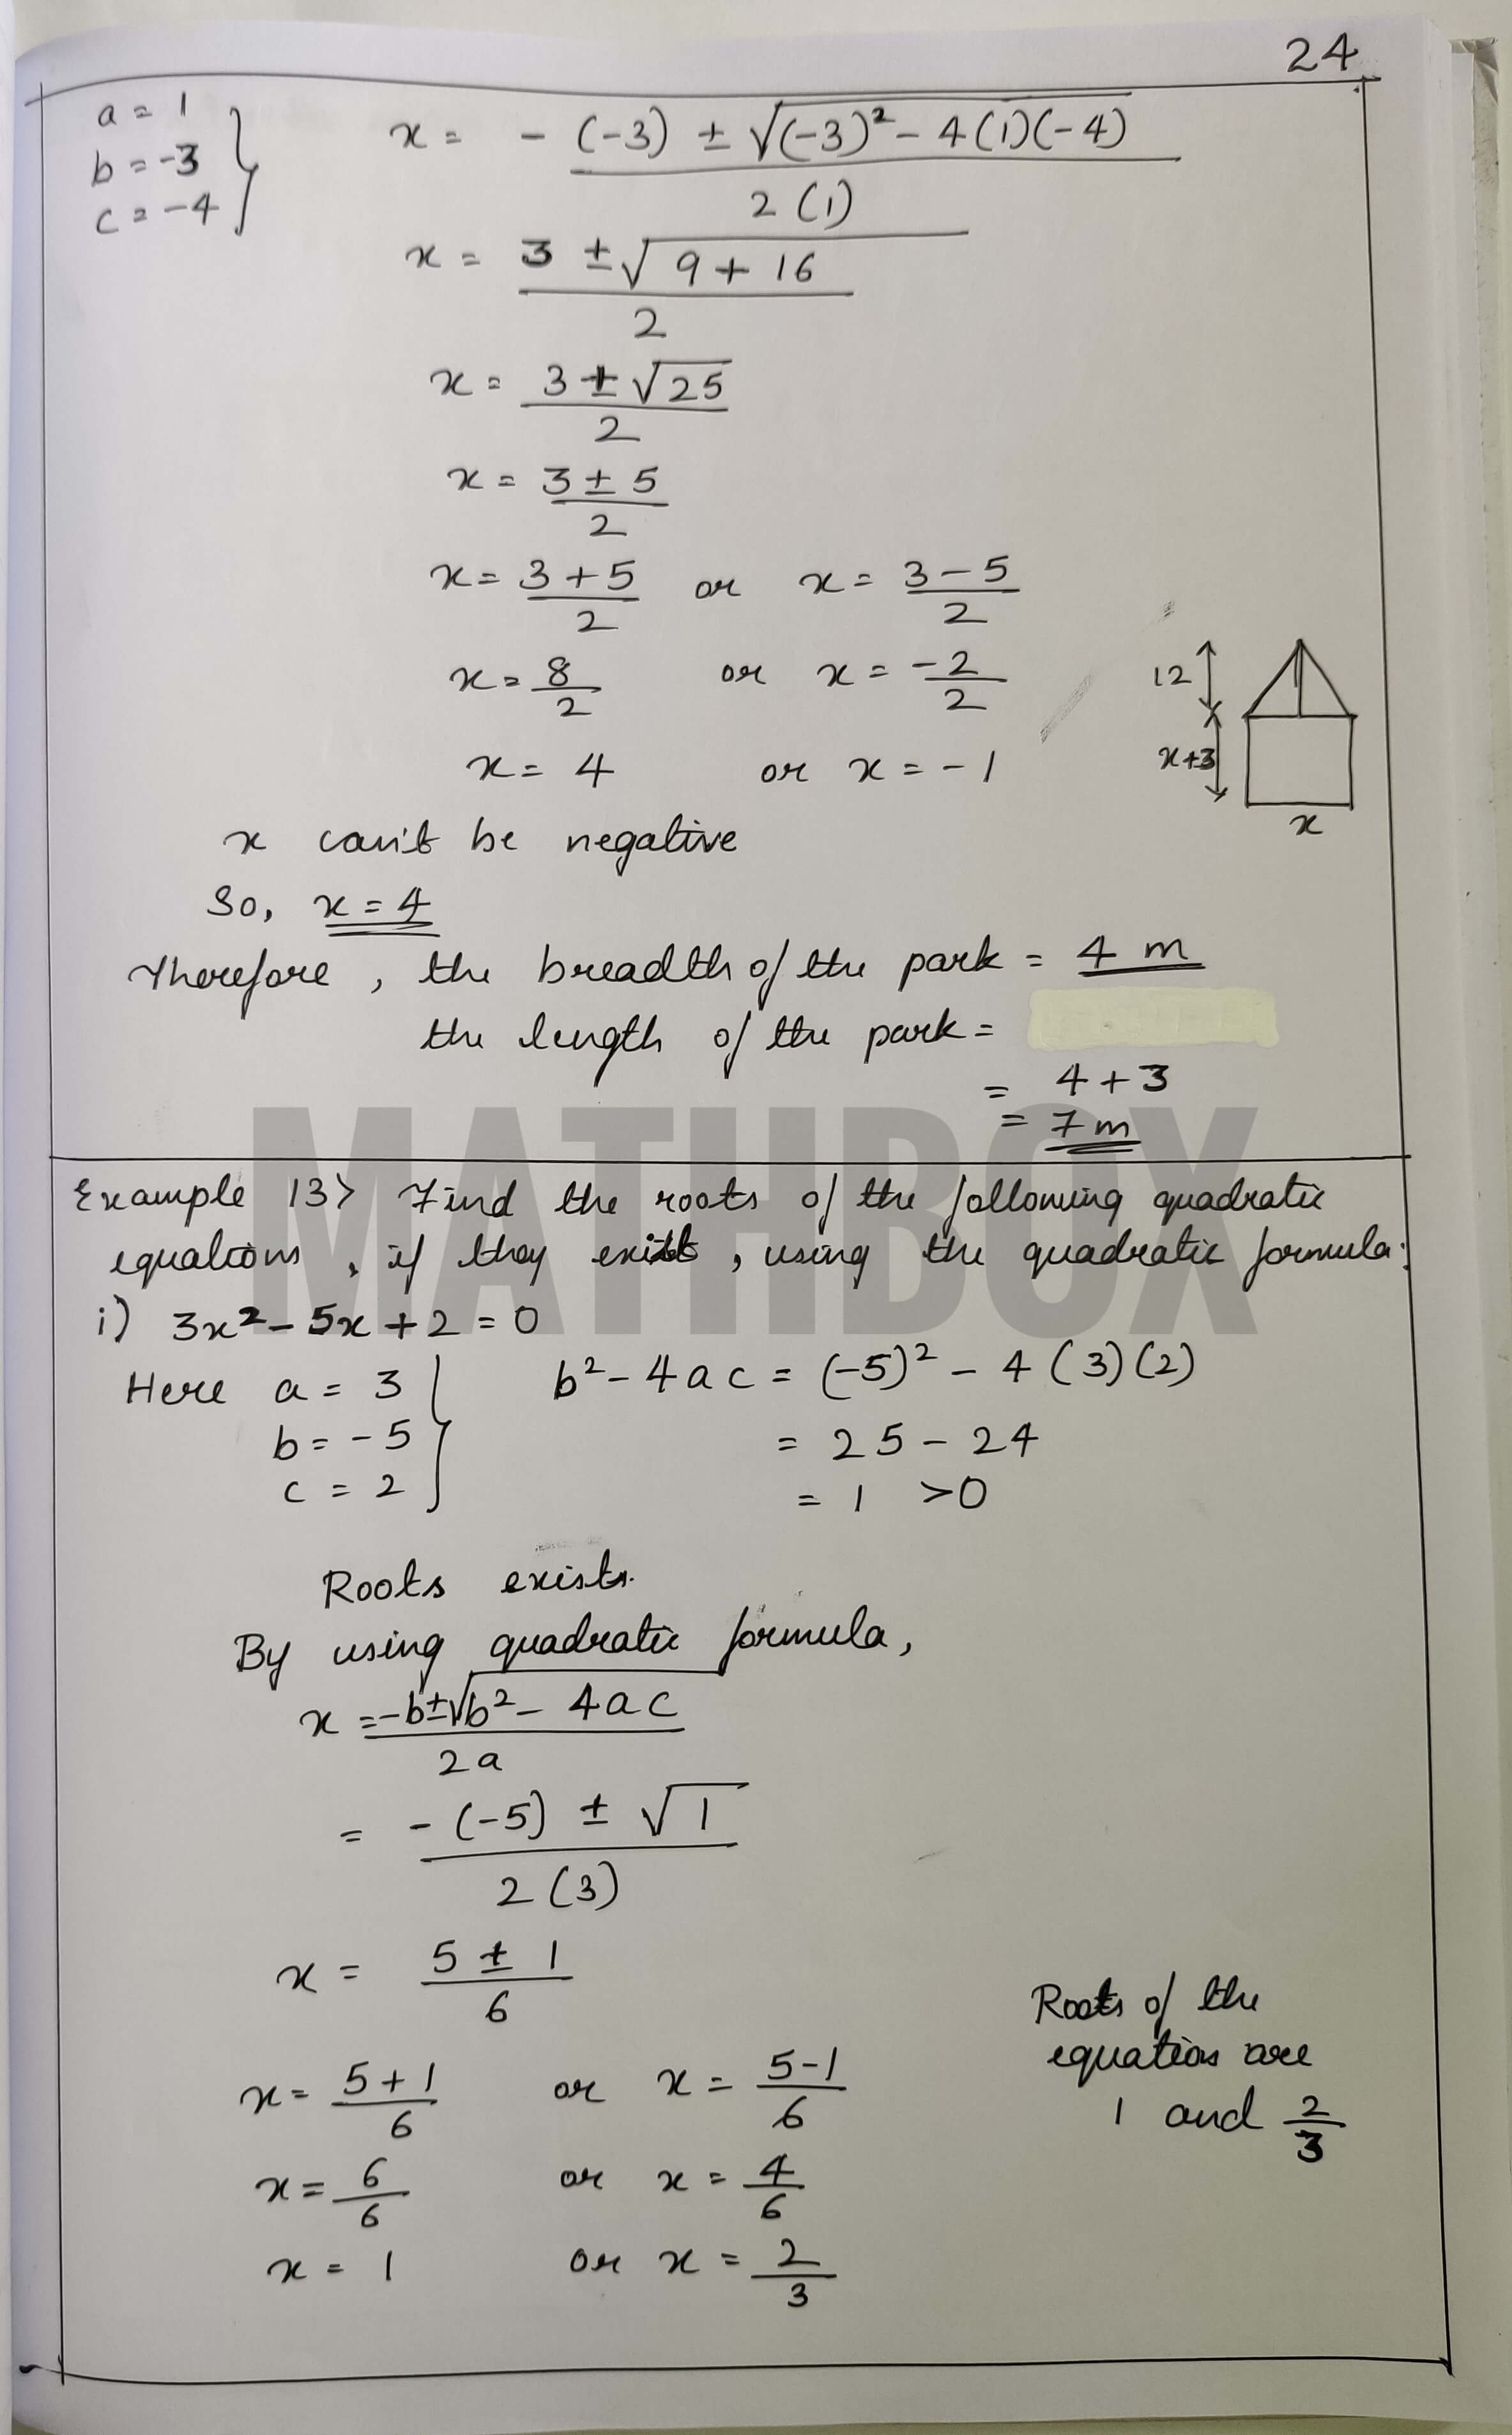 24
a = 1
b = -3
c = -4
x = -(-3) ± √(-3)² - 4(1)(-4)
2(1)
x = 3 ± √9 + 16
2
x = 3 ± √25
2
x = 3 ± 5
2
x = 3 + 5 or x = 3 - 5
2 2
x = 8 or x = -2
2 2
x = 4 or x = -1
12
x+3
x
x can't be negative
So, x = 4
Therefore, the breadth of the park = 4 m
the length of the park =
= 4 + 3
= 7 m
MATHBOX
Example 13> Find the roots of the following quadratic
equations, if they exist, using the quadratic formula:
i) 3x² - 5x + 2 = 0
Here a = 3
b = -5
c = 2
b² - 4ac = (-5)² - 4(3)(2)
= 25 - 24
= 1 >0
Roots exists.
By using quadratic formula,
x = -b ± √b² - 4ac
2a
= -(-5) ± √1
2(3)
x = 5 ± 1
6
x = 5 + 1 or x = 5 - 1
6 6
x = 6 or x = 4
6 6
x = 1 or x = 2
3
Roots of the
equation are
1 and 2
3